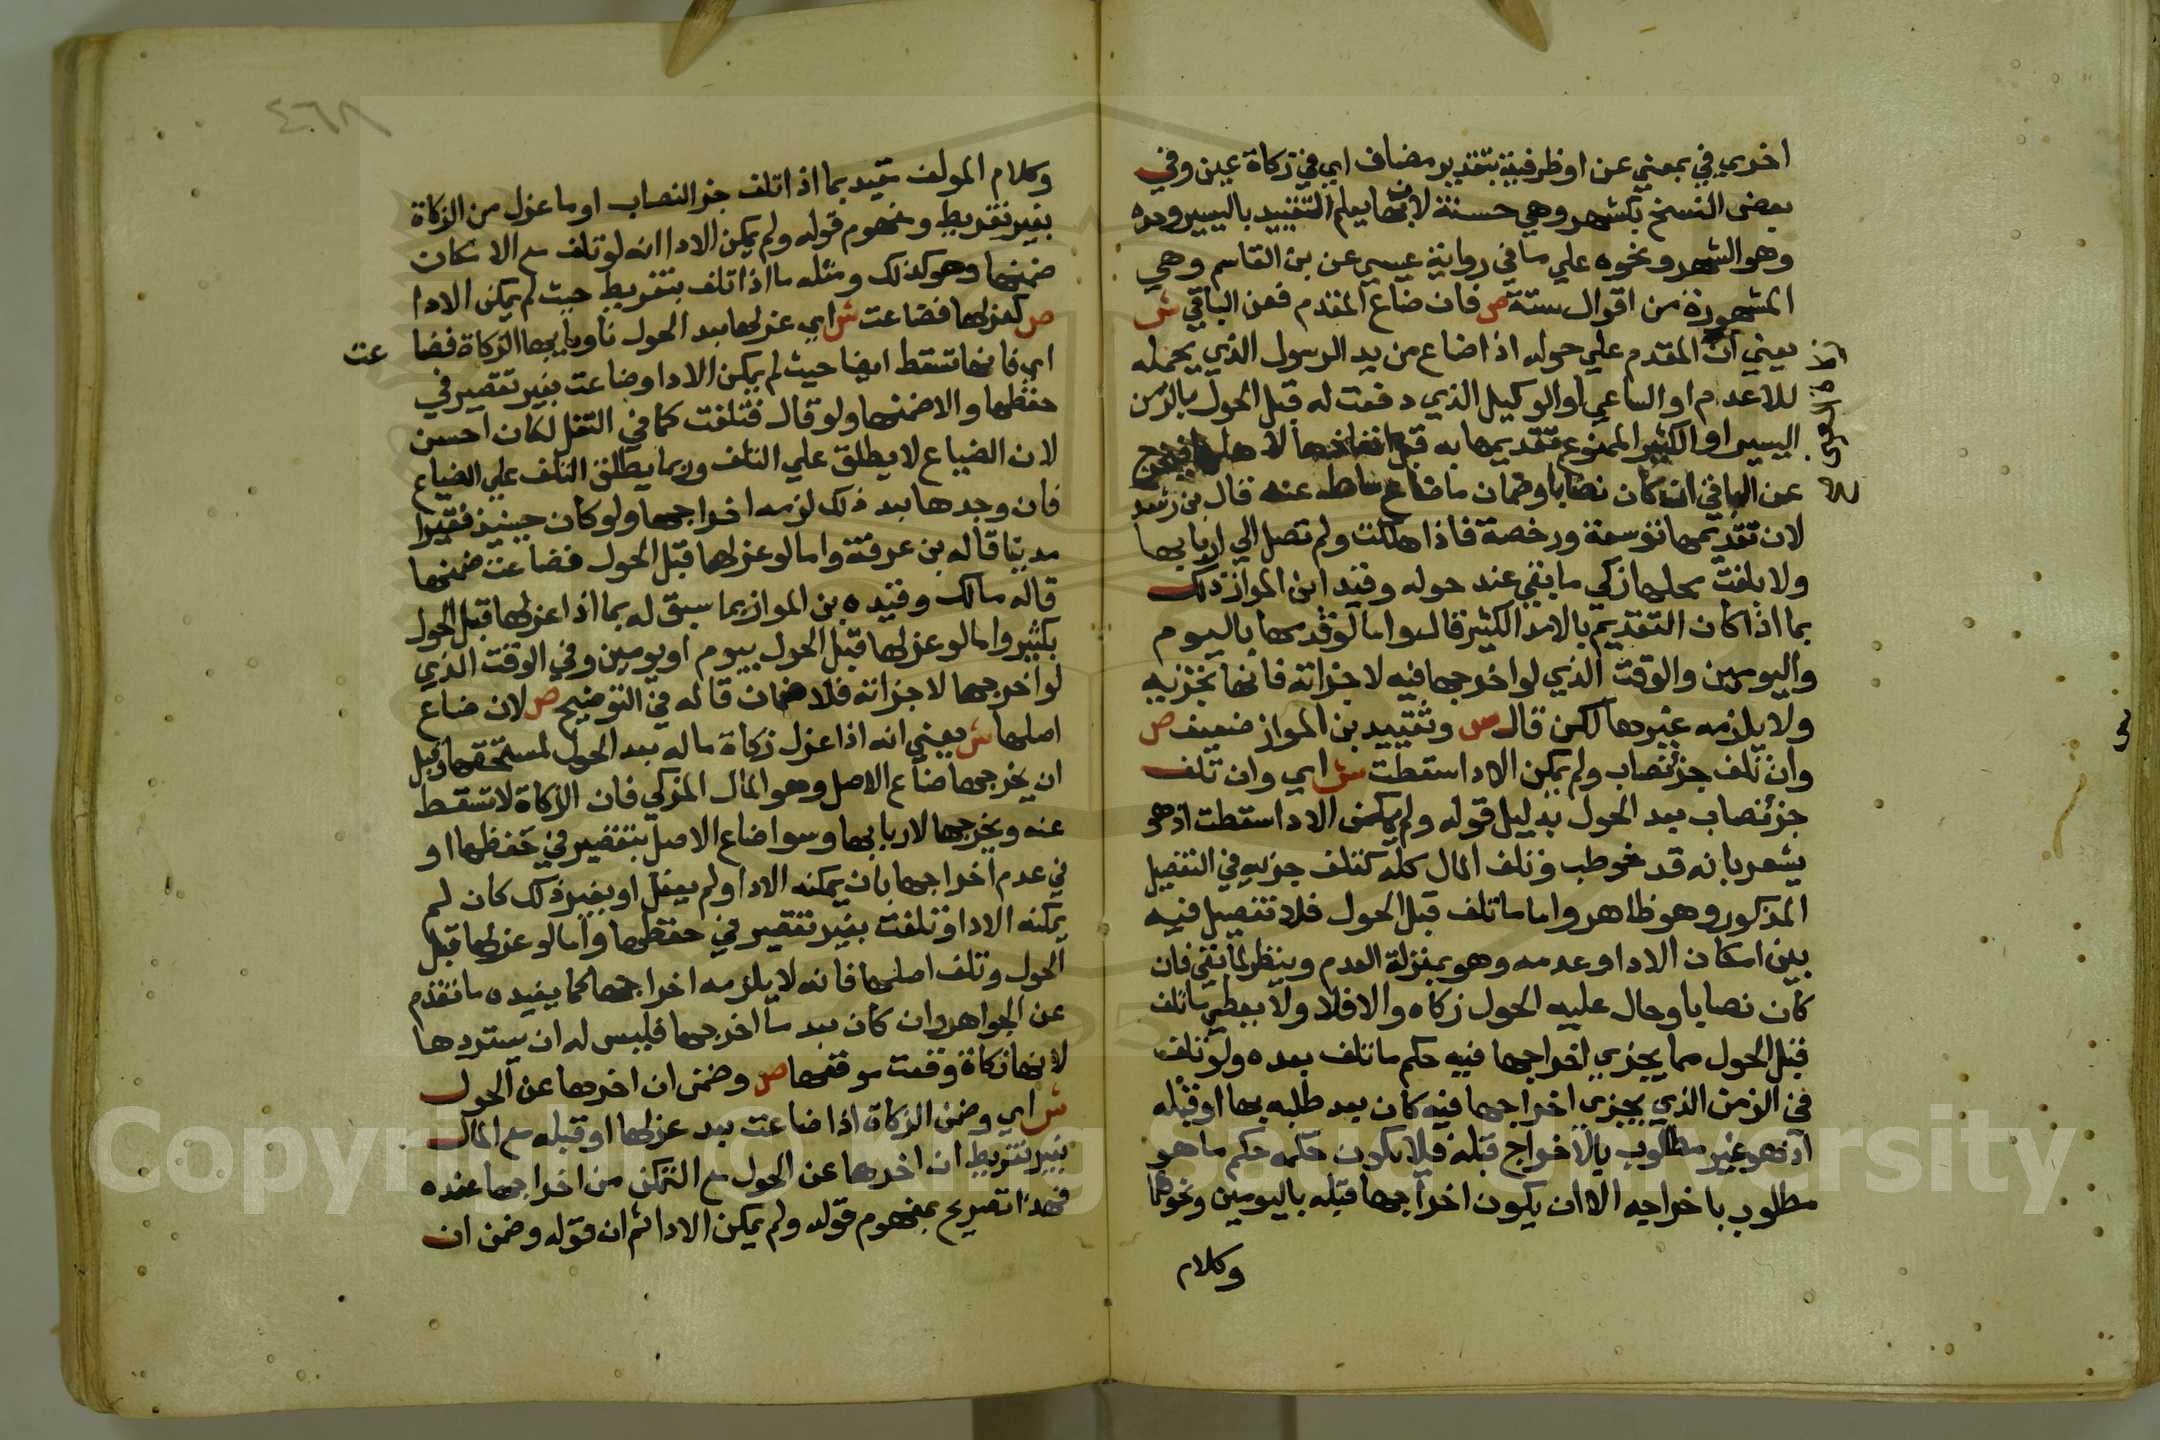 اخري في بمعني عن او ظرفية بتقدير مضاف اي في زكاة عين وفي
بعض النسخ بكشهر وهي حسنة لانها يعلم التقييد باليسير وحده
وهو الشهر ونحوه علي ما في رواية عيسي عن بن القاسم وهي
المشهورة من اقوال ستة ص فان ضاع المقدم فعن الباقي ش
يعني ان المقدم علي حوله اذا ضاع من يد الرسول الذي يحمله
للاعدم او الساعي او الوكيل الذي دفعت له قبل الحول بالزمن
اليسير او الكثير الممنوع تقديمها به قبل لاهلها فيخرج
عن الباقي ان كان نصابا وضمان ما ضاع ساطه عنه قال بن رشد
لان تقديمها توسعة ورخصة فاذا هلكت ولم تصل الي اربابها
ولا بلغت محلها زكي ما بقي عند حوله وقيد ابن المواز ذلك
بما اذا كان التقديم بالامد الكثير قال واما لو قدمها باليوم
واليومين والوقت الذي لو اخرجها فيه لاجزاته فانها تجزيه
ولا يلزمه غيرها لكن قال س وتقييد بن المواز ضعيف ص
وان تلف جزنصاب ولم يمكن الادا سقطت ش اي وان تلف
جزنصاب بعد الحول بدليل قوله ولم يمكن الادا سقطت اذ هو
يشعر بانه قد خوطب وتلف المال كله كتلف جزيه في التفصيل
المذكور وهو ظاهر واما ما تلف قبل الحول فلا تفصيل فيه
بين امكان الادا وعدمه وهو بمنزلة العدم وينظر لما بقي فان
كان نصابا وحال عليه الحول زكاه والا فلا ولا يعطي ما تلف
قبل الحول مما يجزي اخراجها فيه حكم ما تلف بعده ولو تلف
في الزمن الذي يجزي اخراجها فيه كان بعد طلبه بها او قبله
اذ هو غير مطلوب بالاخراج قبله فلا يكون حكمه حكم ما هو
مطلوب باخراجه الا ان يكون اخراجها قبله باليومين ونحوهما
وكلام
٤٦٨
وكلام المولف مقيد بما اذا تلف جز النصاب او ما عزل من الزكاة
بغير تفريط ومفهوم قوله ولم يمكن الادا انه لو تلف مع الامكان
ضمنها وهو كذلك ومثله ما اذا تلف بتفريط حيث لم يمكن الادا
ص كعزلها فضاعت ش اي عزلها بعد الحول ناويا بها الزكاة فضاعت
اي فانها تسقط ايضا حيث لم يمكن الادا وضاعت بغير تقصير في
حفظها والا ضمنها ولو قال فتلفت كما في النقل لكان احسن
لان الضياع لا يطلق علي التلف وربما يطلق التلف علي الضياع
فان وجدها بعد ذلك لزمه اخراجها ولو كان حينيذ فقيرا
مدينا قاله بن عرفة واما لو عزلها قبل الحول فضاعت ضمنها
قاله مالك وقيده بن المواز بما سبق له بما اذا عزلها قبل الحول
بكثير واما لو عزلها قبل الحول بيوم او يومين وفي الوقت الذي
لو اخرجها لاجزاته فلا ضمان قاله في التوضيح ص لان ضاع
اصلها ش يعني انه اذا عزل زكاة ماله بعد الحول لمستحقها وقبل
ان يخرجها ضاع الاصل وهو المال المزكي فان الزكاة لا تسقط
عنه ويخرجها لاربابها وسوا ضاع الاصل بتقصير في حفظها او
في عدم اخراجها بان يمكنه الادا ولم يفعل او بغير ذلك كان لم
يمكنه الادا وتلفت بغير تقصير في حفظها واما لو عزلها قبل
الحول وتلف اصلها فانه لا يلزمه اخراجها كما يفيده ما تقدم
عن الجواهر وان كان بعد ما اخرجها فليس له ان يستردها
لانها زكاة وقعت موقعها ص وضمن ان اخرها عن الحول
ش اي وضمن الزكاة اذا ضاعت بعد عزلها او قبله مع المال
بغير تفريط ان اخرها عن الحول مع التمكن من اخراجها عنده
فهذا تصريح بمفهوم قوله ولم يمكن الادا ثم ان قوله وضمن ان
Copyright © King Saud University